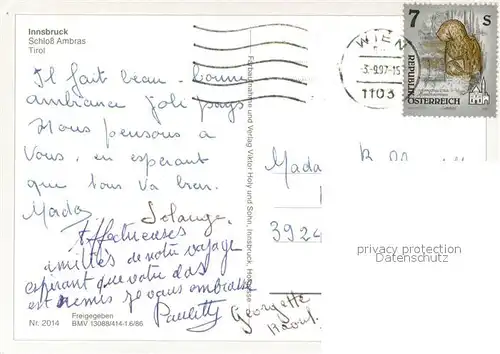 Innsbruck
Schloß Ambras
Tirol
Il fait beau - bonne
ambiance joli pays
Nous pensons a
Vous, en esperant
que tous va bien.
Mado Solange
Affectueuses
amitiés de notre voyage
esperant que votre dos
est remis je vous embrasse
Paulette
Georgette
Raoul.
Nr. 2014
Freigegeben
BMV 13088/414-1.6/86
Farbaufnahme und Verlag Viktor Holly und Sohn, Innsbruck
WIEN
-3.-9.97-15
1103
7 S
REPUBLIK
ÖSTERREICH
Mada
3924
privacy protection
Datenschutz